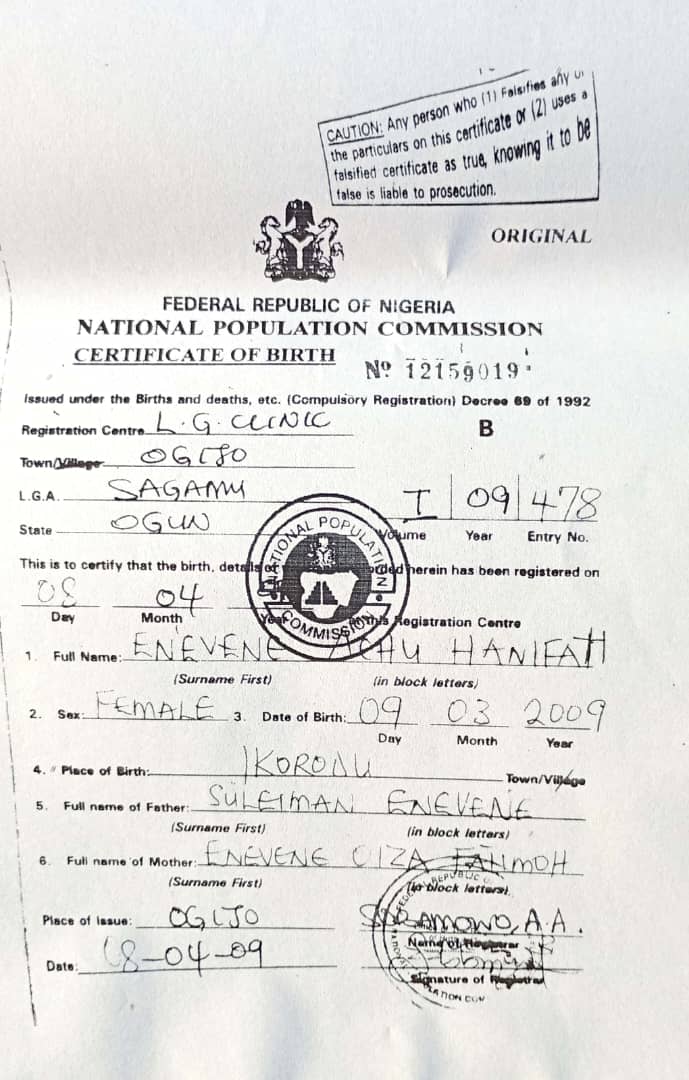 CAUTION: Any person who (1) Falsifies any of
the particulars on this certificate or (2) uses a
falsified certificate as true, knowing it to be
false is liable to prosecution.
ORIGINAL
FEDERAL REPUBLIC OF NIGERIA
NATIONAL POPULATION COMMISSION
CERTIFICATE OF BIRTH
Nº 12159019
Issued under the Births and deaths, etc. (Compulsory Registration) Decree 69 of 1992
Registration Centre L.G. CLINIC
B
Town/Village OGIJO
L.G.A. SAGAMU
I 09 478
State OGUN
Volume Year Entry No.
NATIONAL POPULATION COMMISSION
This is to certify that the birth, details herein has been registered on
08 04
Day Month Year this Registration Centre
1. Full Name: ENEVENE HANIFAH
(Surname First) (in block letters)
2. Sex: FEMALE 3. Date of Birth: 09 03 2009
Day Month Year
4. Place of Birth: IKORODU Town/Village
5. Full name of Father: SULEIMAN ENEVENE
(Surname First) (in block letters)
6. Full name of Mother: ENEVENE OIZA FATIMOH
(Surname First) (in block letters)
Place of Issue: OGIJO A.A.
Name of Registrar
Date: 08-04-09
Signature of Registrar